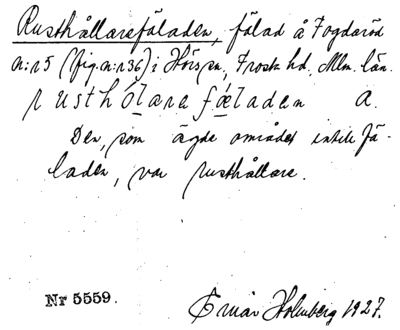 Rusthållarefäladen, fälad å Fogdaröd
n:r 5 (fig. n:r 36) i Hörs sn, Frosta hd, Mlm. län.
rusthólarefǽladen a.
Den, som ägde området intill fä-
laden, var rusthållare.
Nr 5559.
Holmberg 1927.